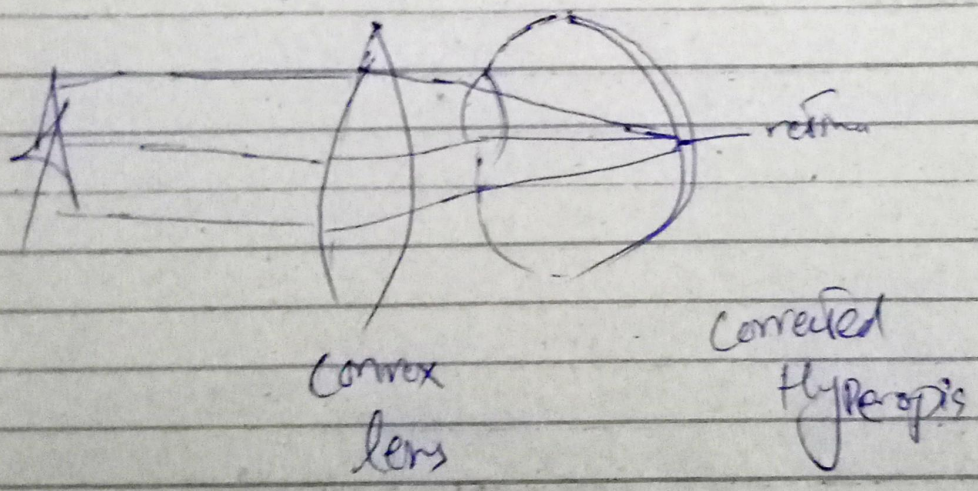 A
retina
Convex
lens
Corrected
Hyperopis